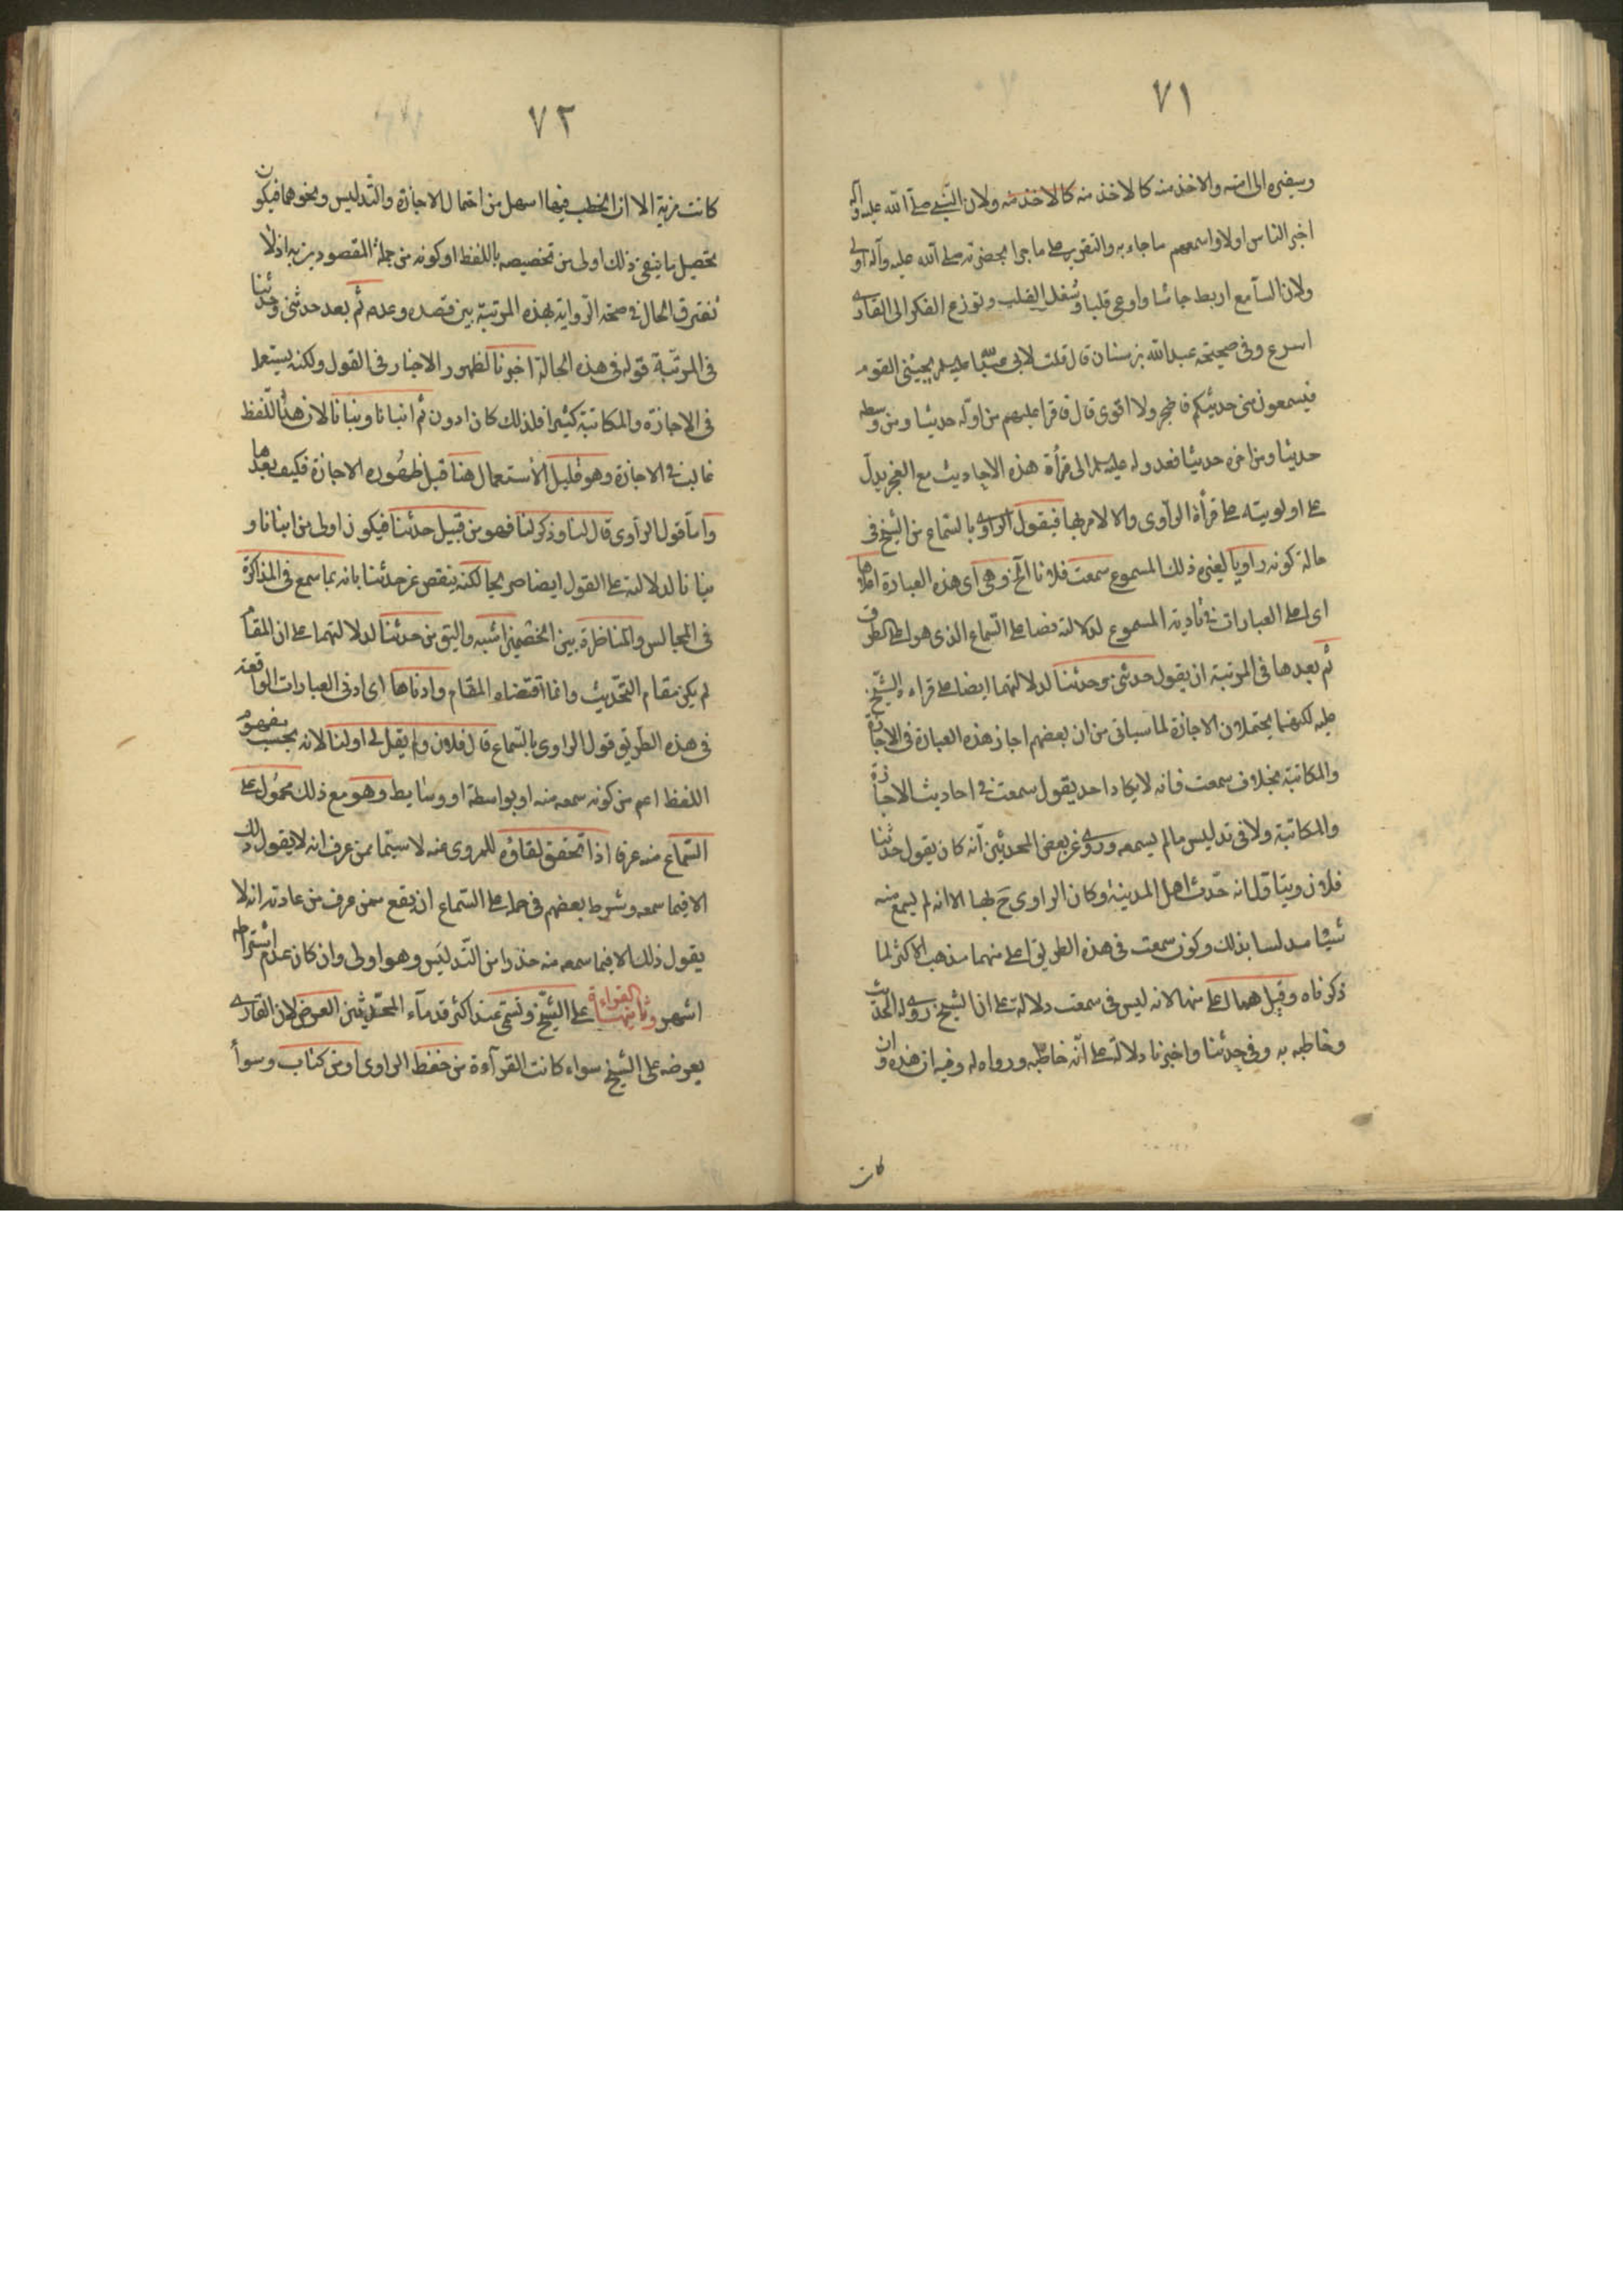 ٧١
وسفيره الى امته والاخذ منه كالاخذ منه كالاخذ منه ولان النبي صلى الله عليه وآله
اخبر الناس اولا واسمعهم ما جاء به والتقرير على ما جرا بحضرته صلى الله عليه وآله اولى
ولان السامع اربط جاشا واوعى قلبا وشغل القلب وتوزع الفكر الى القارى
اسرع وفى صحيحة عبد الله بن سنان قال قلت لابى عبد الله عليه السلم يجيئنى القوم
فيسمعون منى حديثكم فاضجر ولا اقوى قال فاقرا عليهم من اوله حديثا ومن وسطه
حديثا ومن اخره حديثا فعدوله عليه السلم الى قرأة هذه الاحاديث مع العجز يدل
على اولويته على قرأة الراوى والا لامر بها فيقول الراوى بالسماع من الشيخ فى
حالة كونه راويا لغيره ذلك المسموع سمعت فلانا الخ وهى اى هذه العبارة اعلاها
اى اعلى العبارات فى تأدية المسموع لدلالته نصا على السماع الذى هو اعلى الطرق
ثم بعدها فى المرتبة ان يقول حدثنى وحدثنا لدلالتهما ايضا على قراءة الشيخ
عليه لكنهما يحتملان الاجازة لما سياتى من ان بعضهم اجاز هذه العبارة فى الاجازة
والمكاتبة بخلاف سمعت فانه لا يكاد احد يقول سمعت فى احاديث الاجازة
والمكاتبة ولا فى تدليس ما لم يسمعه وروى عن بعض المحدثين انه كان يقول حدثنا
فلان ويتاول انه حدث اهل المدينة وكان الراوى ح بها الا انه لم يسمع منه
شيئا مدلسا بذلك وكون سمعت فى هذه الطريق اعلى منهما مذهب الاكثر لما
ذكرناه وقيل هما اعلى منها لانه ليس فى سمعت دلالة على ان الشيخ روى له الحديث
وخاطبه به وفى حدثنا واخبرنا دلالة على انه خاطبه ورواه له وفيه ان هذه وان
كانت
٧٢
كانت مزية الا ان الخطب فيها اسهل من احتمال الاجازة والتدليس ونحوهما فيكون
تحصيل ما ينفى ذلك اولى من تخصيصه باللفظ او كونه من جملة المقصودين به اذ لا
تفترق الحال فى صحة الرواية بهذه المرتبة بين قصده وعدمه ثم بعد حدثنى وحدثنا
فى المرتبة قوله فى هذه الحالة اخبرنا لظهور الاخبار فى القول ولكنه يستعمل
فى الاجازة والمكاتبة كثيرا فلذلك كان ادون ثم انبانا ونبانا لان هذا اللفظ
غالب فى الاجازة وهو قليل الاستعمال هنا قبل ظهور الاجازة فكيف بعدها
واما قول الراوى قال لنا وذكر لنا فهو من قبيل حدثنا فيكون اولى من انبانا و
نبانا لدلالته على القول ايضا صريحا لكنه ينقص عن حدثنا بانه بما سمع فى المذاكرة
فى المجالس والمناظرة بين الخصمين اشبه واليق من حدثنا لدلالتهما على ان المقام
لم يكن مقام التحديث وانما اقتضاه المقام وادناها اى ادنى العبارات الواقعة
فى هذه الطريق قول الراوى بالسماع قال فلان ولم يقل لى او لنا لانه بحسب مفهوم
اللفظ اعم من كونه سمعه منه او بواسطة او وسايط وهو مع ذلك محمول على
السماع منه عرفا اذا تحقق لقاؤه للمروى عنه لا سيما ممن عرف انه لا يقول ذلك
الا فيما سمعه وشرط بعضهم فى حمله على السماع ان يقع ممن عرف من عادته انه لا
يقول ذلك الا فيما سمعه منه حذرا من التدليس وهو اولى وان كان عدم اشتراطه
اشهر وثانيها القراءة على الشيخ وتسمى عند اكثر قدماء المحدثين العرض لان القارى
يعرضه على الشيخ سواء كانت القرآءة من حفظ الراوى او من كتاب وسوأ